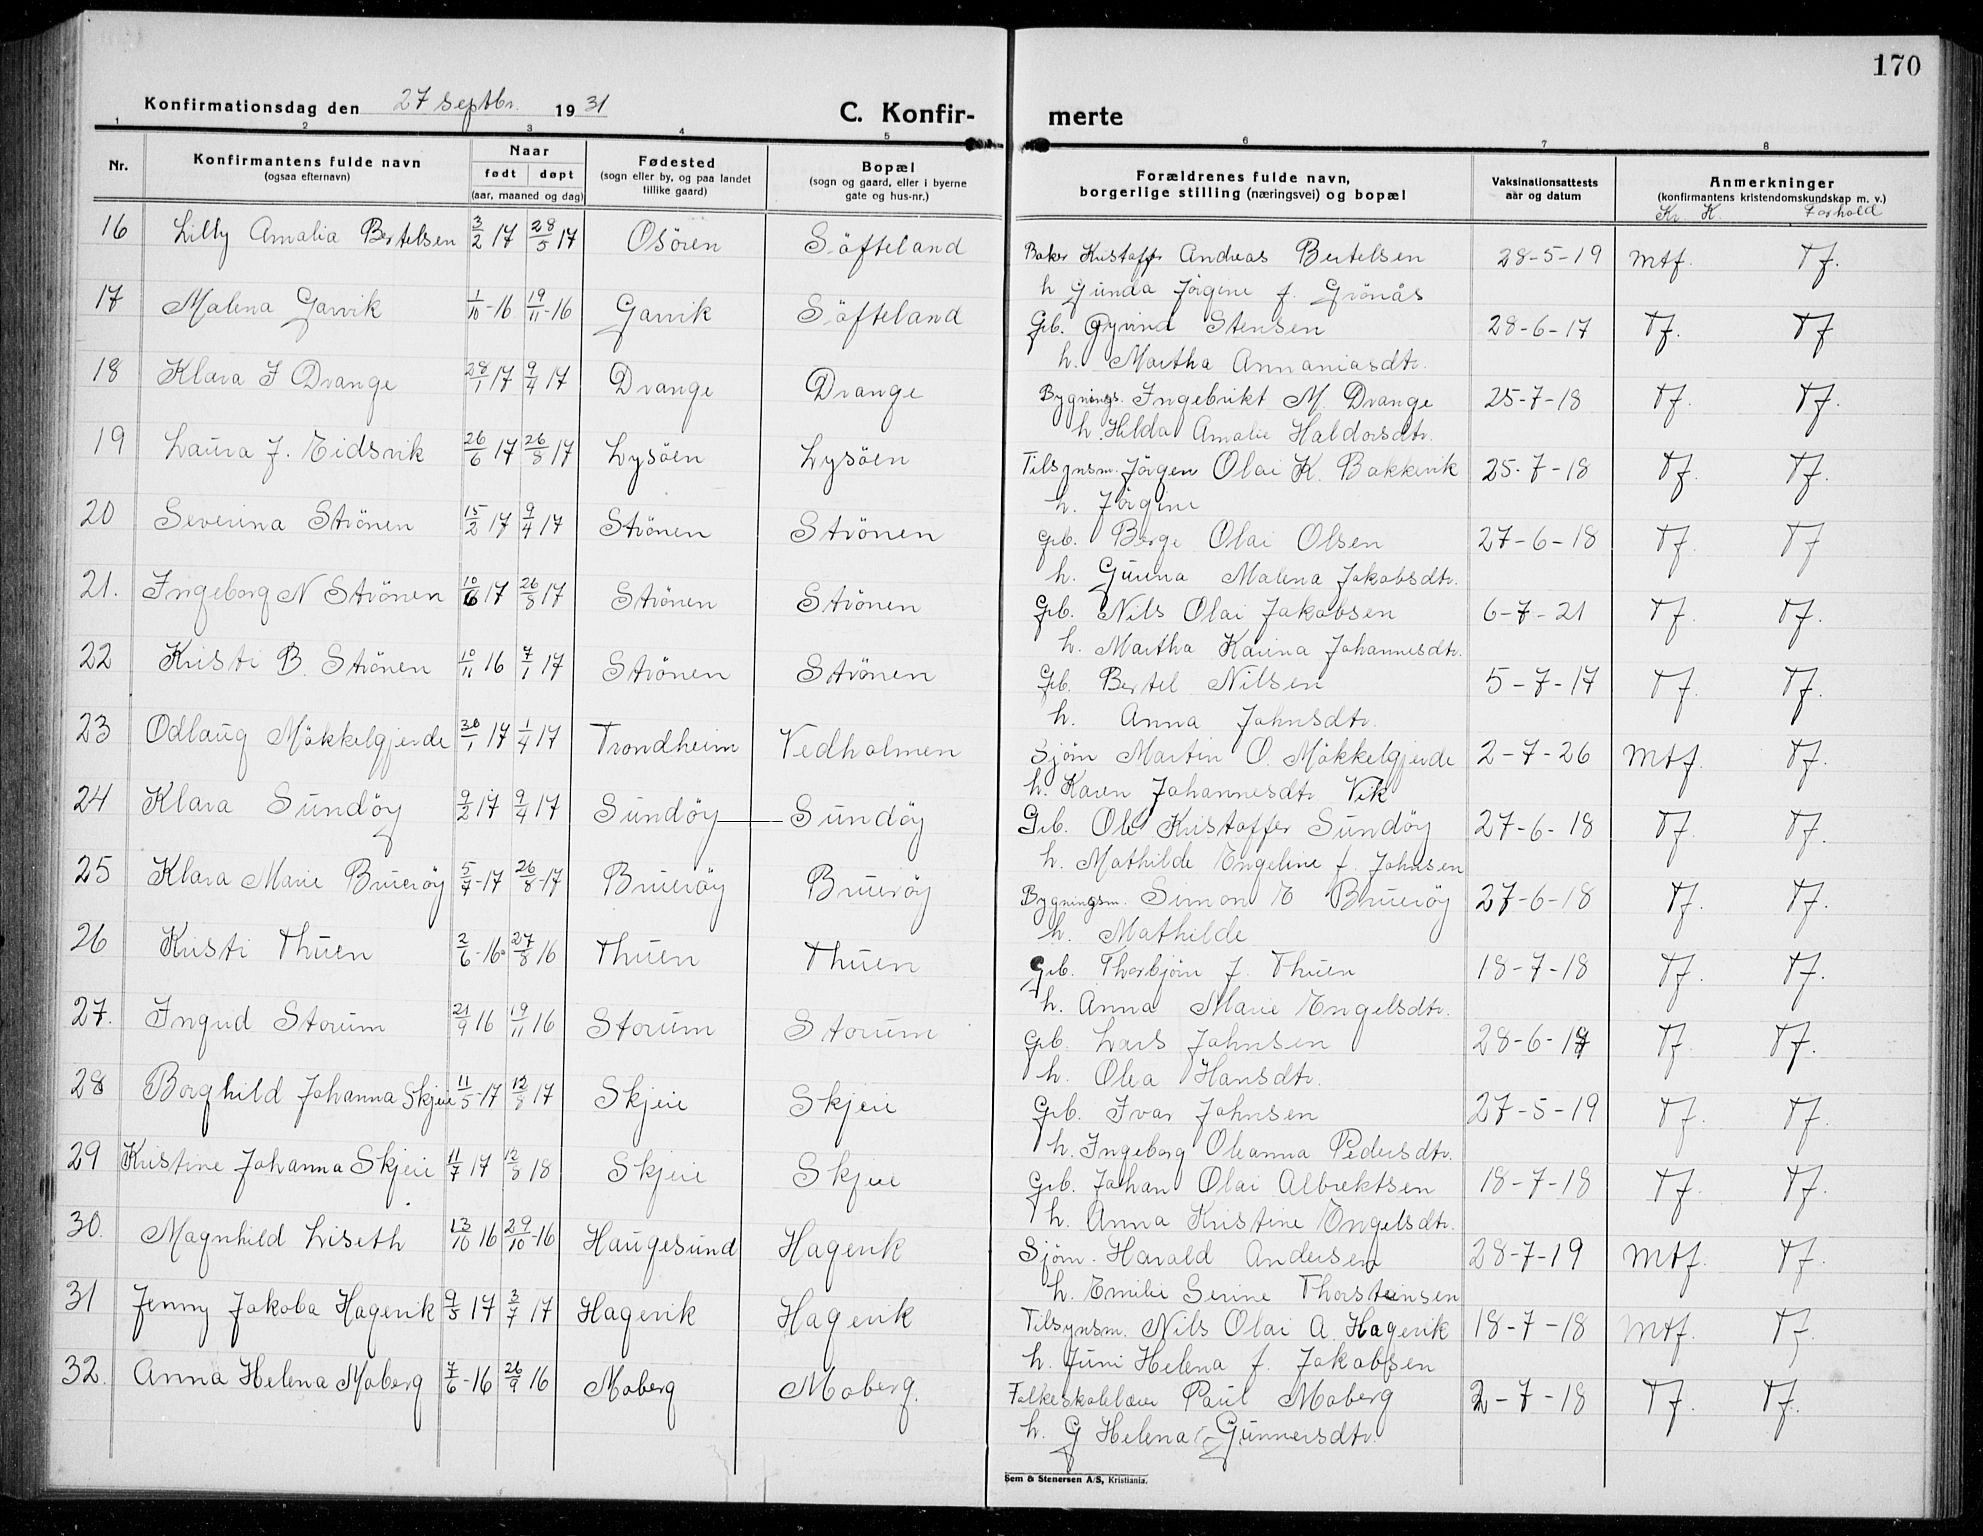 170
Konfirmationsdag den 27 septbr. 1931 C. Konfir- merte
1 2 3 4 5 6 7 8
Nr. Konfirmantens fulde navn (ogsaa efternavn) Naar født døpt (aar, maaned og dag) Fødested (sogn eller by, og paa landet tillike gaard) Bopæl (sogn og gaard, eller i byerne gate og hus-nr.) Forældrenes fulde navn, borgerlige stilling (næringsvei) og bopæl Vaksinationsattests aar og datum Anmerkninger (konfirmantens kristendomskundskap m. v.)
Kr K Forhold
16 Lilly Amalia Bertelsen 3/2 17 28/5 17 Osören Söfteland Baker Kristoffer Andreas Bertelsen 28-5-19 Mtf. Tf.
h Gunda Jörgine f. Grönås
17 Malena Garvik 1/10-16 19/11-16 Garvik Söfteland Grb. Øyvind Stensen 28-6-17 Tf. Tf
h. Martha Annaniasdtr.
18 Klara I Drange 28/1 17 9/4 17 Drange Drange Bygnings. Ingebrikt M Drange 25-7-18 Tf. Tf.
h. Hilda Amalie Haldorsdtr.
19 Laura J. Eidsvik 26/6 17 26/8 17 Lysöen Lysöen Tilsynsm. Jörgen Olai K. Bakkevik 25-7-18 Tf. Tf.
h. Jörgine
20 Severina Strönen 15/2 17 9/4 17 Strönen Strönen Grb. Berge Olai Olsen 27-6-18 Tf. Tf
h. Gurina Malena Jakobsdtr.
21. Ingeborg N Strönen 10/6 17 26/8 17 Strönen Strönen Grb. Nils Olai Jakobsen 6-7-21 Tf. Tf.
h. Martha Karina Johannesdtr.
22 Kristi B. Strönen 10/11 16 7/1 17 Strönen Strönen Grb. Bertel Nilsen 5-7-17 Tf. Tf.
h. Anna Johnsdtr.
23 Odlaug Mökkelgjerde 30/1 17 1/4 17 Trondheim Vedholmen Sjöm Martin O. Mökkelgjerde 2-7-26 Mtf. Tf.
h. Karen Johannesdtr Vik
24 Klara Sundöy 9/2 17 9/4 17 Sundöy Sundöy Grb. Ole Kristoffer Sundöy 27-6-18 Tf. Tf.
h. Mathilde Engeline f. Johnsen
25 Klara Marie Brueröy 5/7-17 26/8-17 Brueröy Brueröy Bygningsm. Simon E Brueröy 27-6-18 Tf. Tf.
h. Mathilde
26 Kristi Thuen 2/6-16 27/8 16 Thuen Thuen Grb. Thorbjörn J. Thuen 18-7-18 Tf. Tf.
h. Anna Marie Engelsdtr.
27. Ingrid Storum 21/9 16 19/11 16 Storum Storum Grb. Lars Johnsen 28-6-17 Tf. Tf.
h. Olea Hansdtr.
28 Borghild Johanna Skjeie 11/5-17 12/8 17 Skjeie Skjeie Grb. Ivar Johnsen 27-5-19 Tf. Tf.
h. Ingeborg Oleanna Pedersdtr.
29 Kristine Johanna Skjeie 11/7 17 12/8 18 Skjeie Skjeie Grb. Johan Olai Albrektsen 18-7-18 Tf. Tf.
h. Anna Kristine Engelsdtr.
30. Magnhild Liseth 13/10 16 29/10-16 Haugesund Hagevik Sjöm. Harald Andersen 28-7-19 Mtf. Tf.
h. Emilie Serine Thorsteinsen
31 Jenny Jakoba Hagevik 9/5 17 3/7 17 Hagevik Hagevik Tilsynsm. Nils Olai A. Hagevik 18-7-18 Mtf. Tf.
h. Juni Helena f. Jakobsen
32. Anna Helena Moberg 7/6-16 26/9 16 Moberg Moberg. Folkeskolelærer Paul Moberg 2-7-18 Tf. Tf.
h. G Helena Gunnersdtr.
Sem & Stenersen A/S, Kristiania.